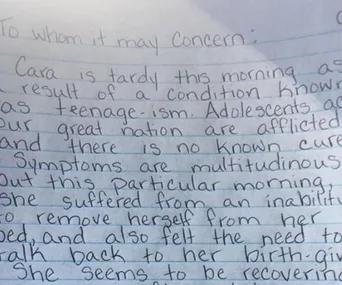 To whom it may Concern:
Cara is tardy this morning as
a result of a condition known
as teenage-ism. Adolescents ac
our great nation are afflicted
and there is no known cure
Symptoms are multitudinous
but this particular morning,
she suffered from an inability
to remove herself from her
bed, and also felt the need to
talk back to her birth-giv
She seems to be recovering